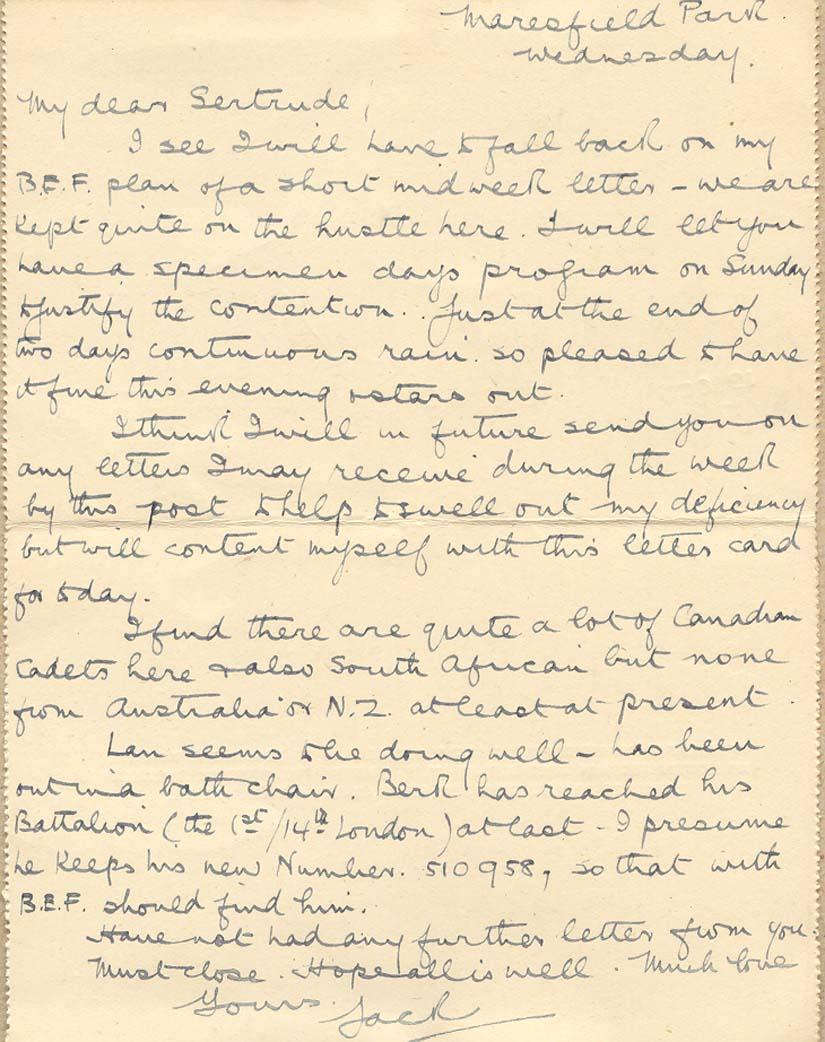 Maresfield Park.
Wednesday.
My dear Gertrude,
I see I will have to fall back on my
B.E.F. plan of a short midweek letter - we are
kept quite on the hustle here. I will let you
have a specimen days program on Sunday
to justify the contention. Just at the end of
two days continuous rain. so pleased to have
it fine this evening & stars out.
I think I will in future send you on
any letters I may receive during the week
by this post to help to swell out my deficiency
but will content myself with this letter card
for today.
I find there are quite a lot of Canadian
Cadets here & also South African but none
from Australia or N.Z. at least at present.
Lan seems to be doing well - has been
out in a bath chair. Berk has reached his
Battalion (the 1st/14th London) at last - I presume
he keeps his new Number. 510958, so that with
B.E.F. should find him.
Have not had any further letter from you.
Must close. Hope all is well. Much love
Yours. Jack